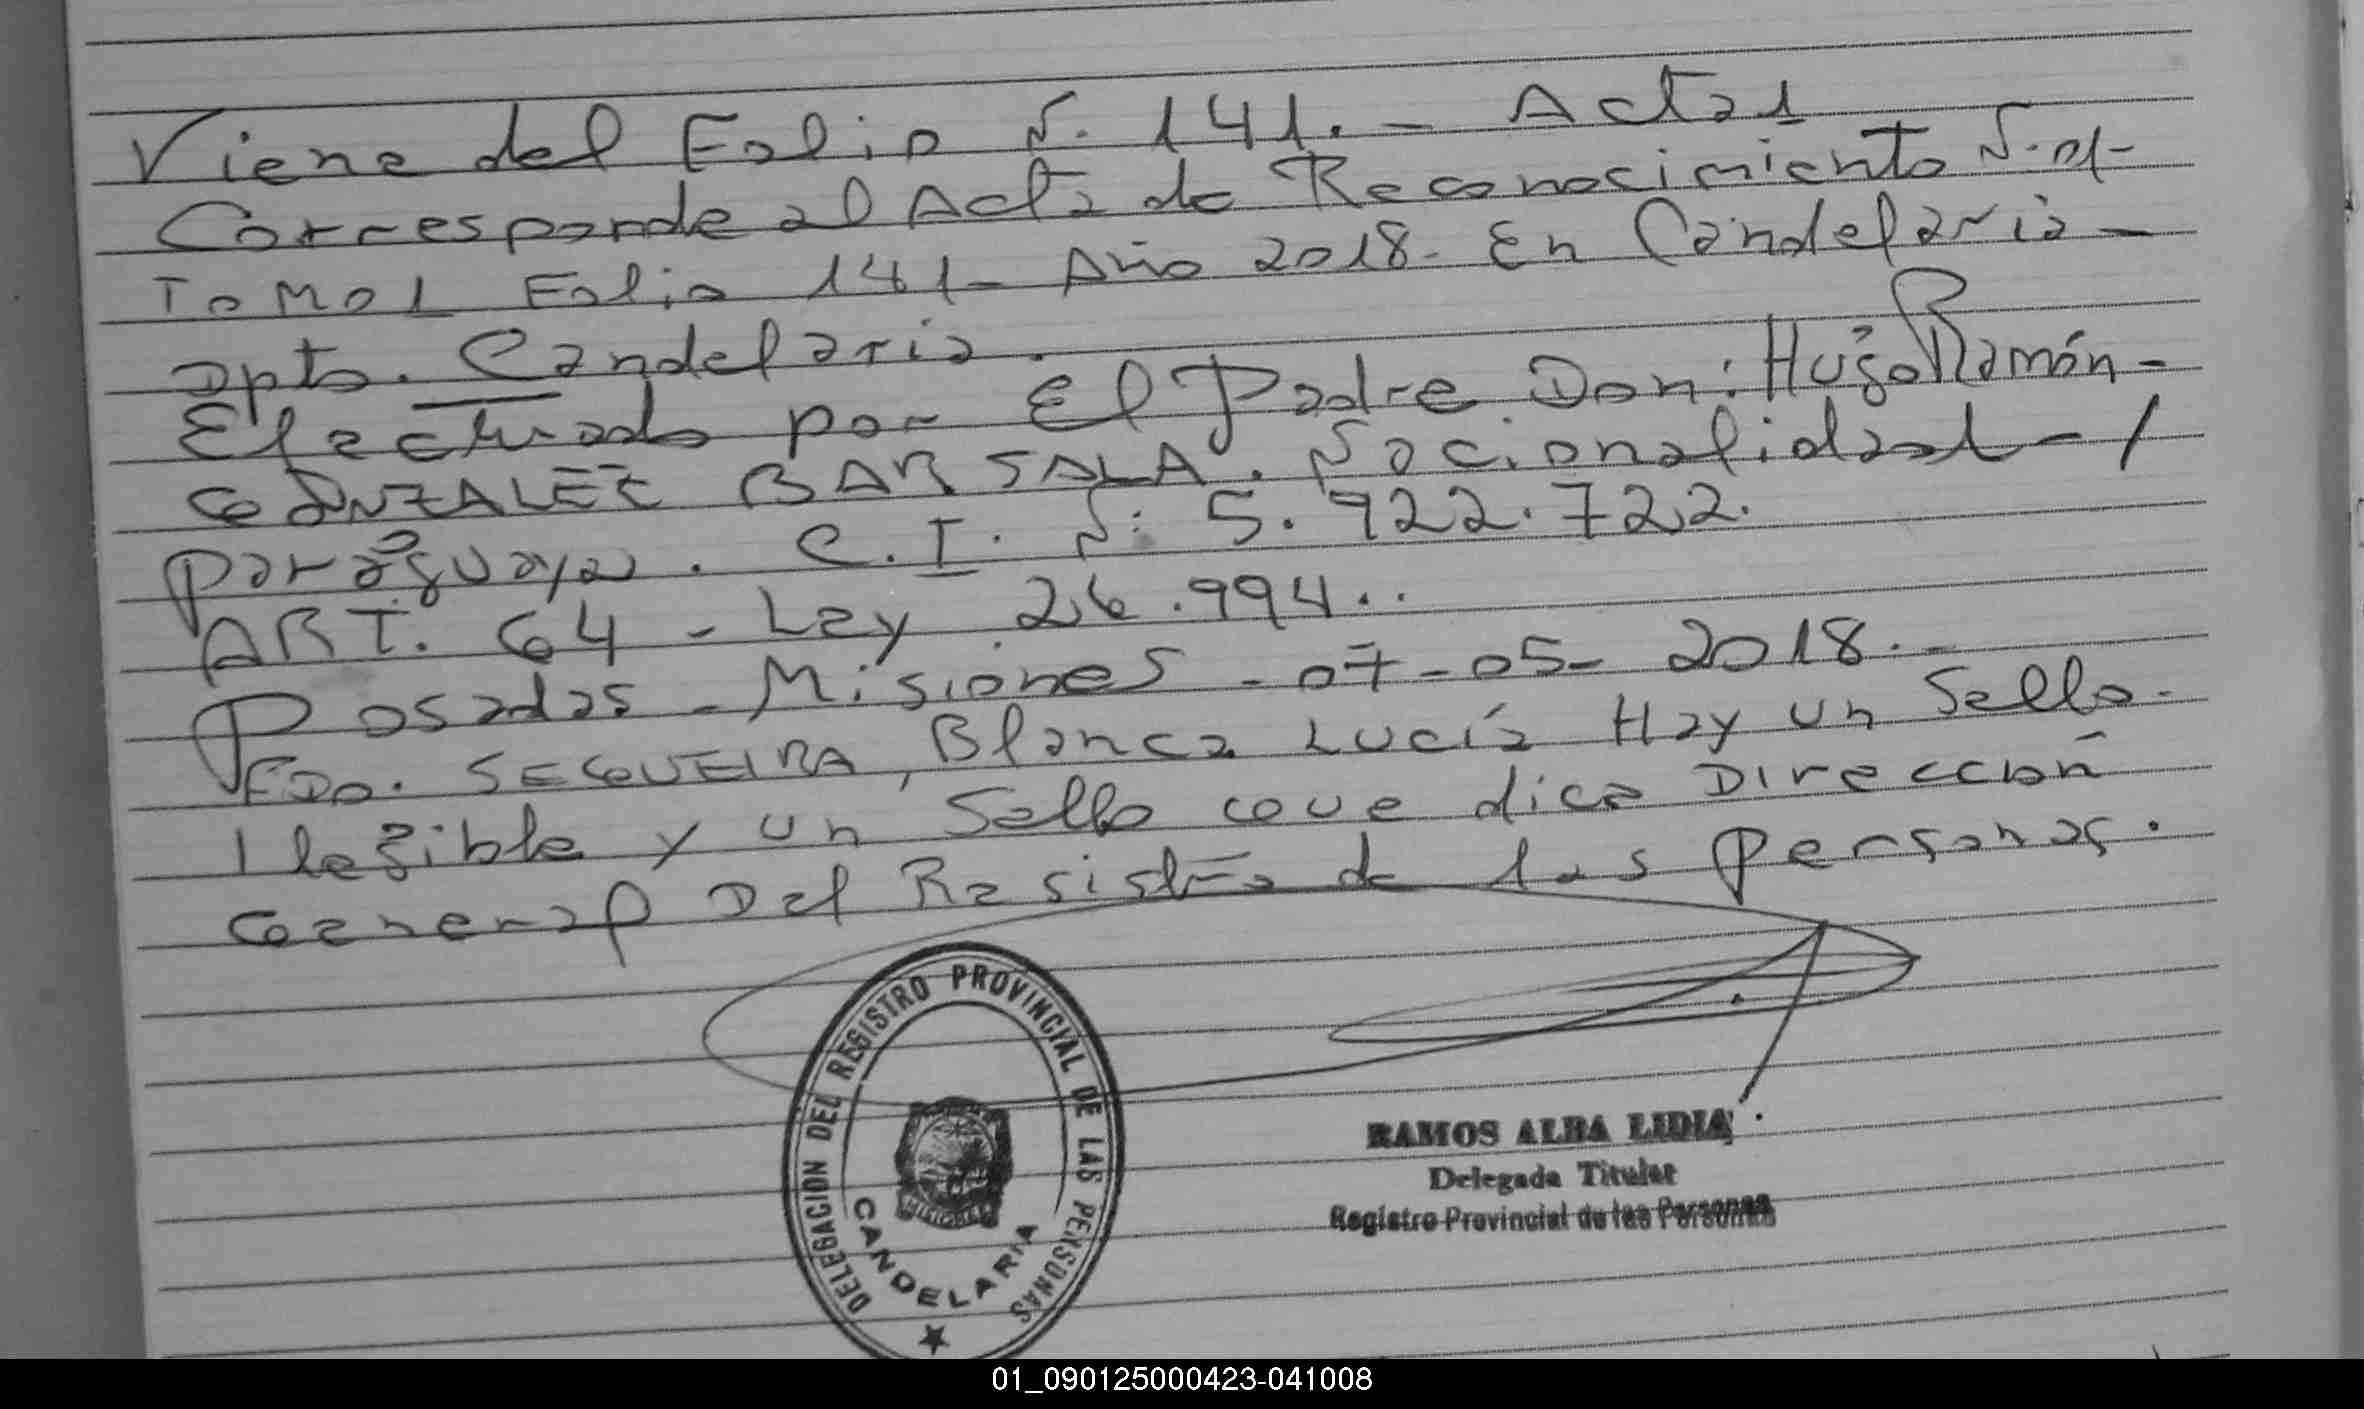 Viene del Folio N. 141. - Acta 1
Corresponde al Acta de Reconocimiento N. 01-
Tomo 1 Folio 141 - Año 2018. En Candelaria -
Dpto. Candelaria.
Efectuado por El Padre Don: Hugo Ramón -
GONZALEZ BARSALA. Nacionalidad - /
paraguaya. C.I. N: 5.922.722.
ART. 64 - Ley 26.994..
Posadas - Misiones - 07-05- 2018. -
FDO. SEQUEIRA, Blanca Lucía Hay un Sello -
Ilegible y un Sello que dice Dirección
General Del Registro de las Personas.
DELEGACION DEL REGISTRO PROVINCIAL DE LAS PERSONAS
CANDELARIA
RAMOS ALBA LIDIA
Delegada Titular
Registro Provincial de las Personas
01_090125000423-041008